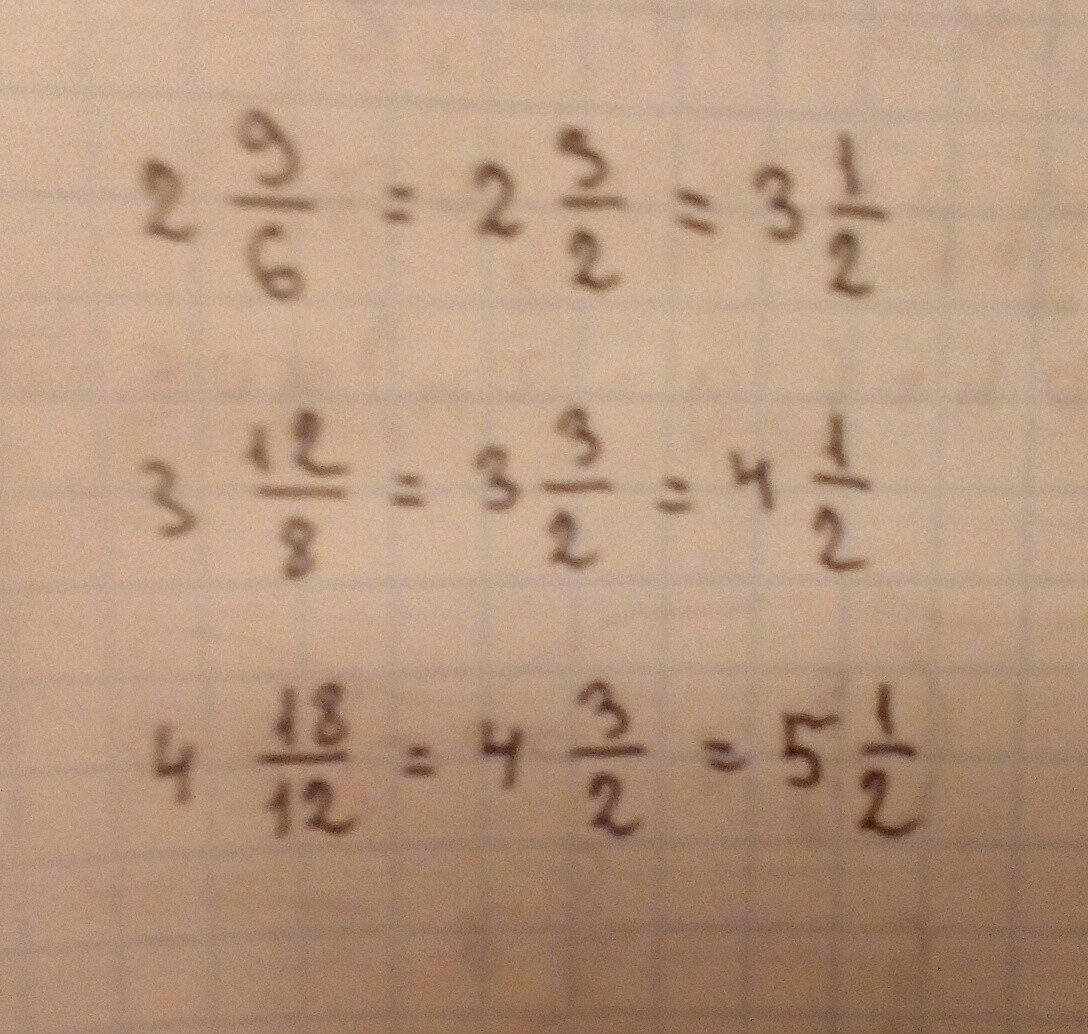 2 9/6 = 2 3/2 = 3 1/2
3 12/8 = 3 3/2 = 4 1/2
4 18/12 = 4 3/2 = 5 1/2